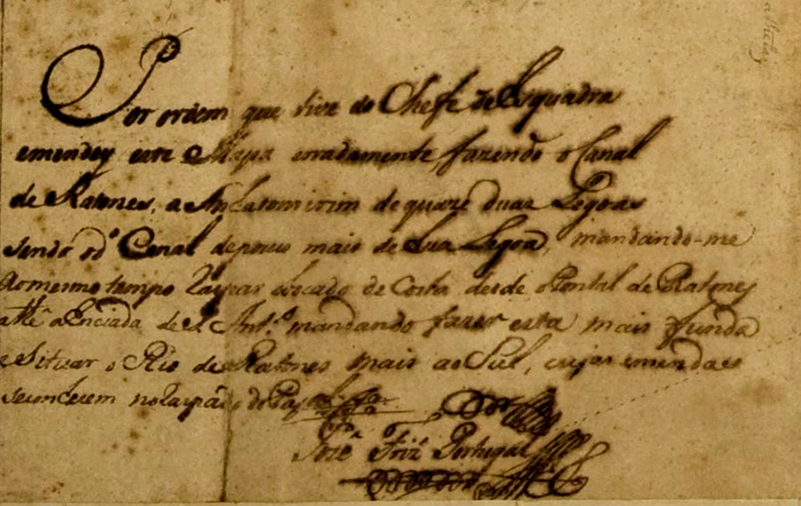 Por ordem que tive do Chefe de Esquadra
emendey este Mapa erradamente fazendo o Canal
de Ratones, a Anhatomirim de quaze duas Legoas
sendo o d.º Canal de pouco mais de hua Legoa, mandando-me
ao mesmo tempo Raspar o bocado de Costa desde o Pontal de Ratones
athé a Enciada de S. Ant.º mandando fazer esta mais funda
e Situar o Rio de Ratones mais ao Sul, cujas emendas
se conhecem no Raspado do Papel
Jozé Friz' Portugal